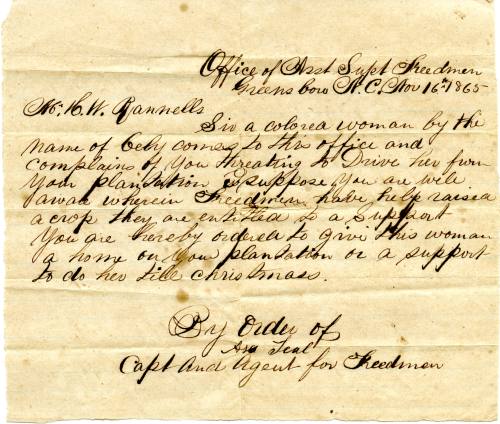 Office of Asst Supt Freedmen
Greensboro N.C. Nov 16th 1865
Mr. H. W. Rannells
Sir a colored woman by the
name of Cely comes to this office and
complains of you threating to Drive her furm
your plantation I suppose you are well
aware wherein Freedmen have help raised
a crop they are entitled to a support
You are hereby ordered to give this woman
a home on your plantation or a support
to do her till christmass.
By Order of
Asa Teal
Capt and Agent for Freedmen